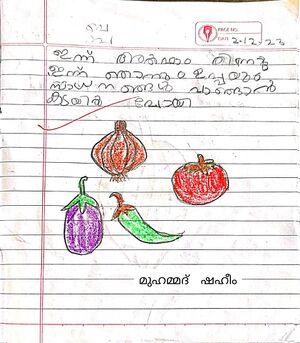 PAGE NO:
DATE: 2-12-23
ഇന്ന്
ഇന്ന് ഞാനും ഉപ്പയും
സാധനങ്ങൾ വാങ്ങാൻ
കടയിൽ പോയി
മുഹമ്മദ് ഷഹീം